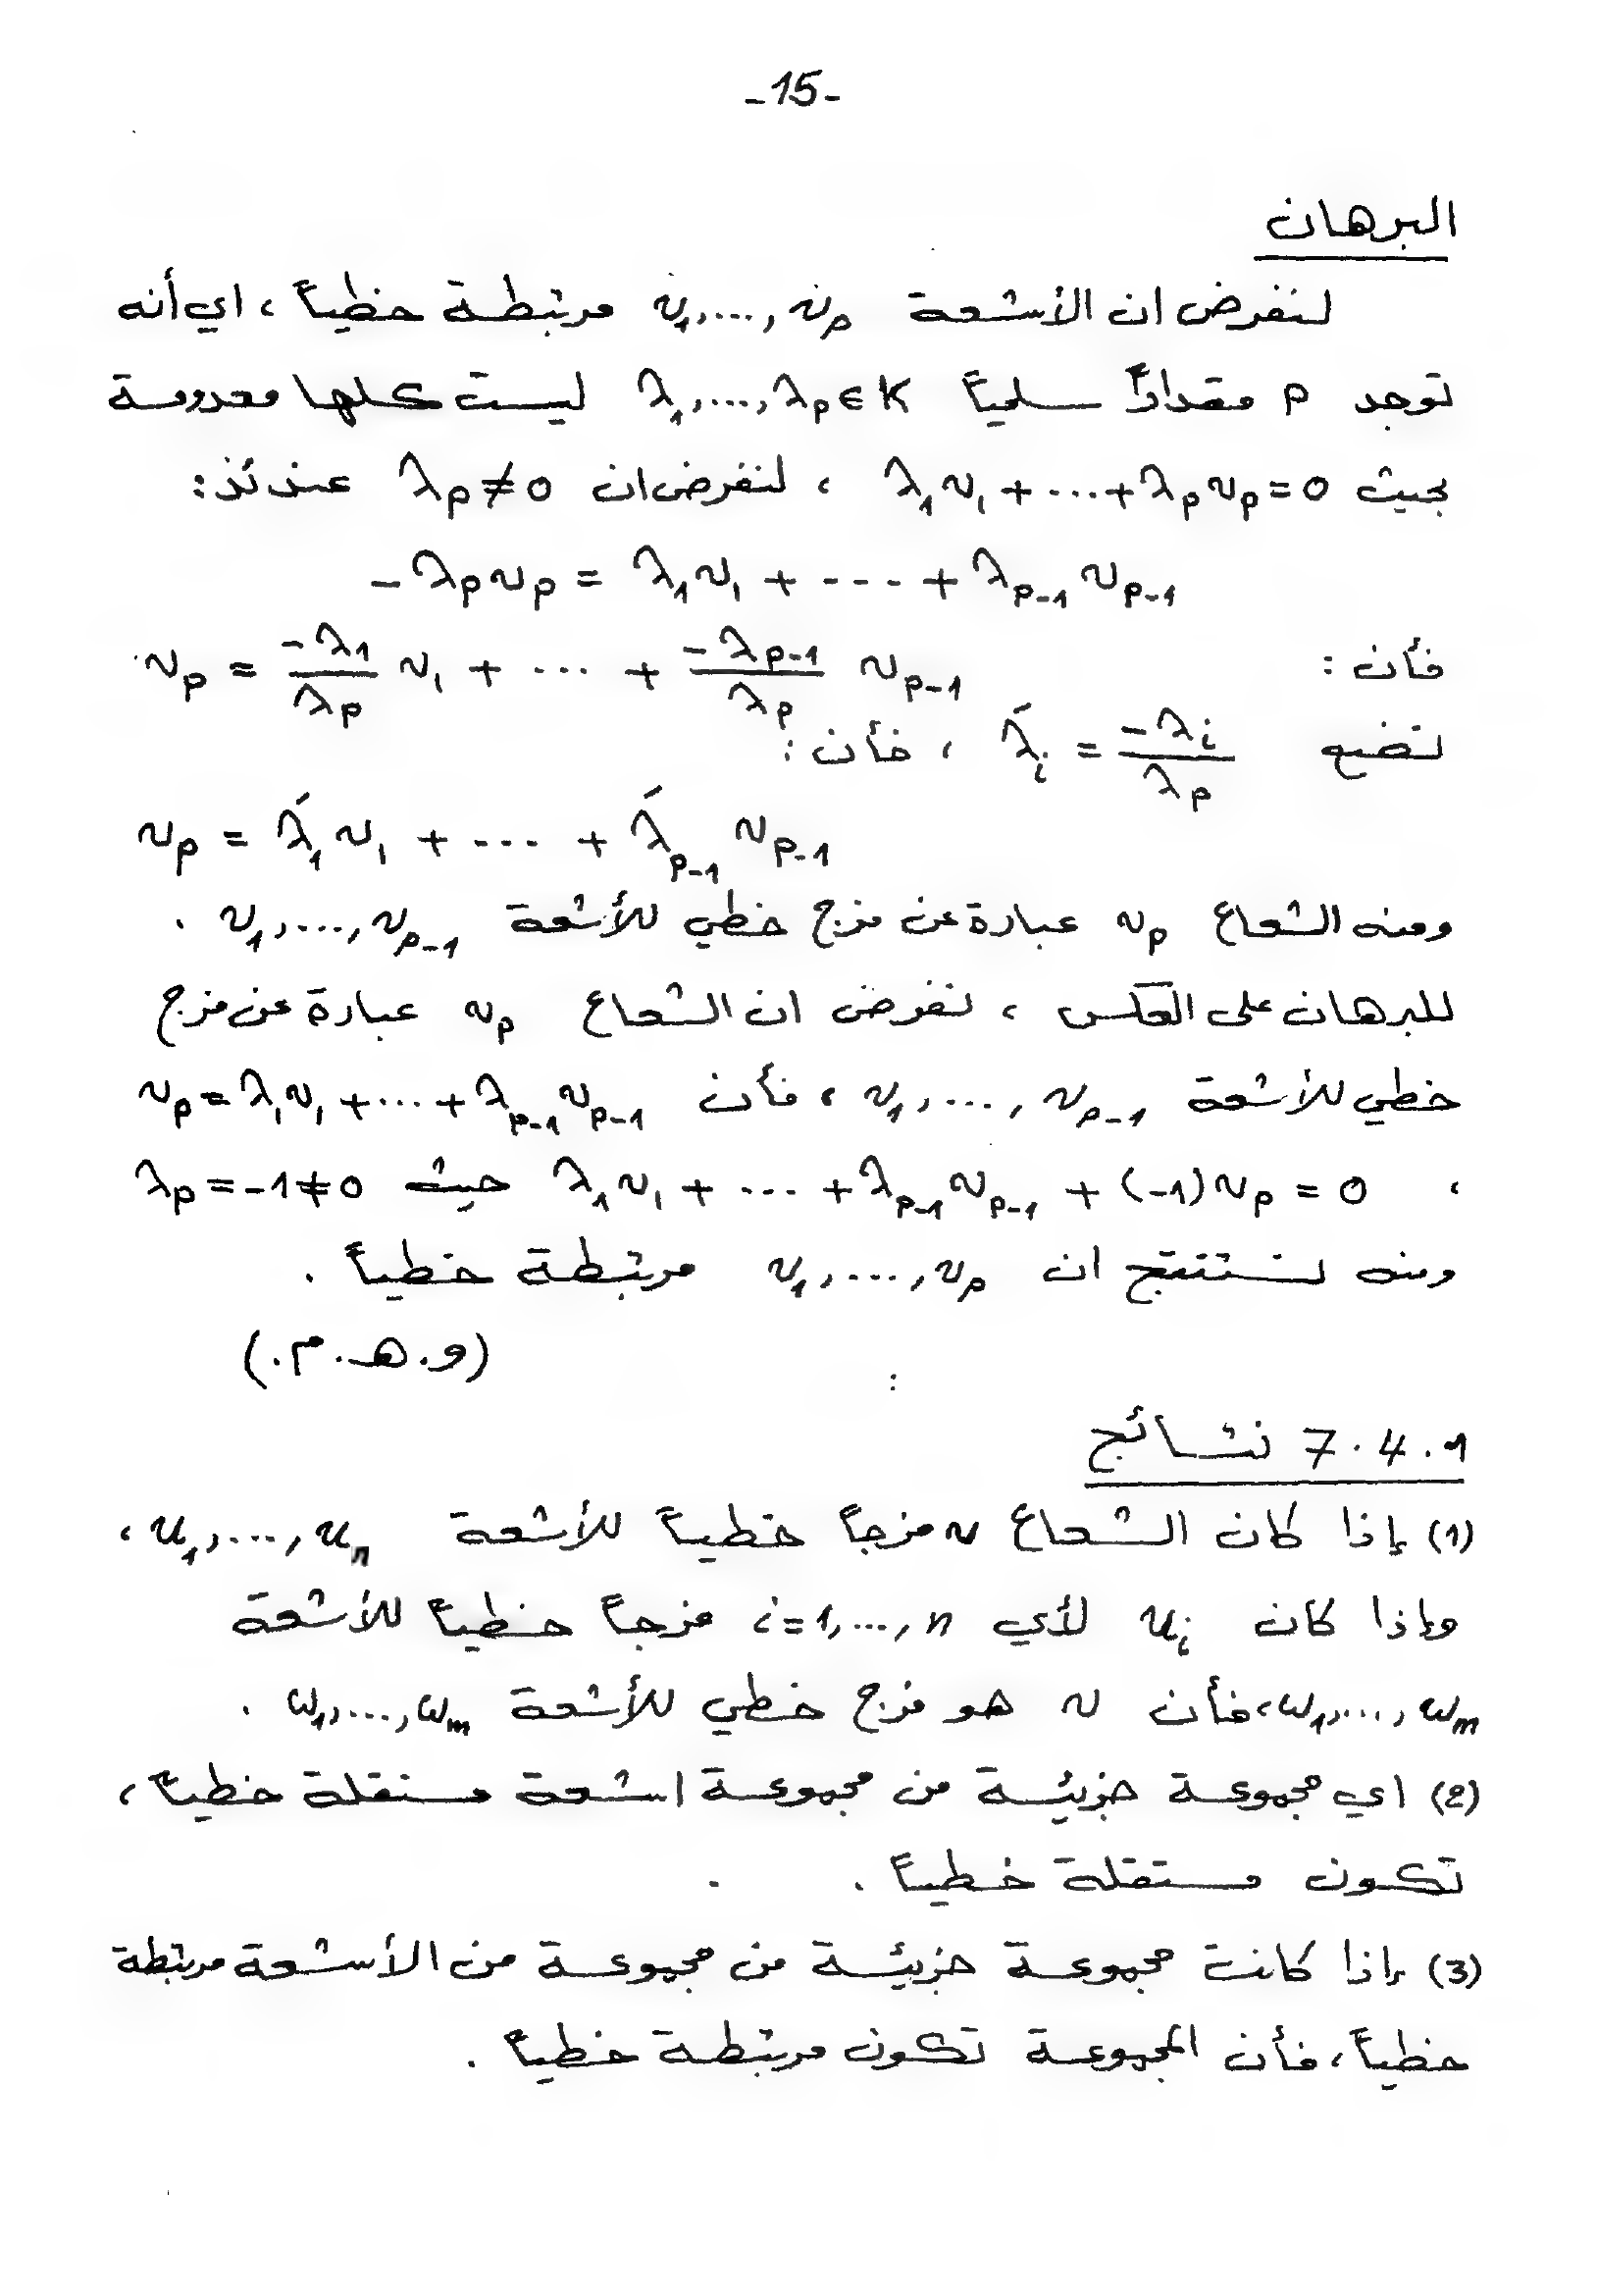 -15-
البرهان
لنفرض ان الأشعة v₁,...,vₚ مرتبطة خطياً ، اي أنه
توجد p مقداراً سلمياً λ₁,...,λₚ∈K ليست كلها معدومة
بحيث λ₁v₁+...+λₚvₚ=0 ، لنفرض ان λₚ≠0 عندئذ:
-λₚvₚ = λ₁v₁ + --- + λₚ₋₁vₚ₋₁
فأن : vₚ = \frac{-λ₁}{λₚ} v₁ + ... + \frac{-λₚ₋₁}{λₚ} vₚ₋₁
نضع λ́ᵢ = \frac{-λᵢ}{λₚ} ، فأن :
vₚ = λ́₁v₁ + --- + λ́ₚ₋₁vₚ₋₁
ومنه الشعاع vₚ عبارة عن مزج خطي للأشعة v₁,...,vₚ₋₁ .
للبرهان على العكس ، نفرض ان الشعاع vₚ عبارة عن مزج
خطي للأشعة v₁,...,vₚ₋₁ ، فأن vₚ=λ₁v₁+...+λₚ₋₁vₚ₋₁
، λ₁v₁ + --- +λₚ₋₁vₚ₋₁ + (-1)vₚ = 0 حيث λₚ=-1≠0
ومنه نستنتج ان v₁,...,vₚ مرتبطة خطياً .
(و.هـ.م.)
7.4.1 نتائج
(1) إذا كان الشعاع v مزجاً خطياً للأشعة u₁,...,uₙ ،
وإذا كان uᵢ لأي i=1,...,n مزجاً خطياً للأشعة
w₁,...,wₘ ،فأن v هو مزج خطي للأشعة w₁,...,wₘ .
(2) اي مجموعة جزيئية من مجموعة اشعة مستقلة خطياً ،
تكون مستقلة خطياً .
(3) إذا كانت مجموعة جزيئية من مجموعة من الأشعة مرتبطة
خطياً ، فأن المجموعة تكون مرتبطة خطياً .